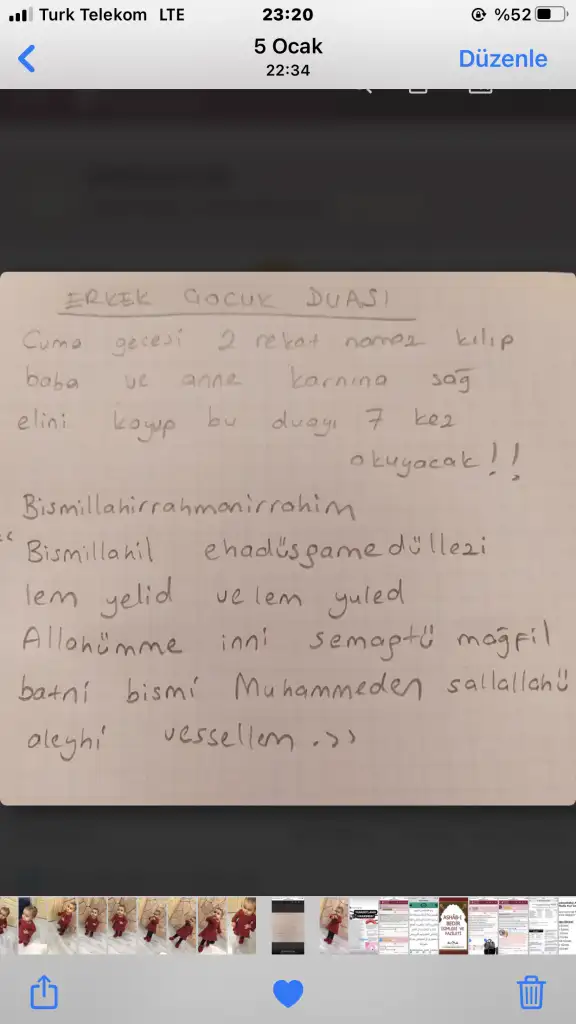 Turk Telekom LTE 23:20 %52
5 Ocak
22:34
Düzenle
ERKEK ÇOCUK DUASI
Cuma gecesi 2 rekat namaz kılıp
baba ve anne karnına sağ
elini koyup bu duayı 7 kez
okuyacak!!
Bismillahirrahmanirrahim
"Bismillahil ehadüsgamedüllezi
lem yelid ve lem yuled
Allahümme inni semaptü mağfil
batni bismi Muhammeden sallallahü
aleyhi vessellem.>>
ASHÂB-I
BEDİR